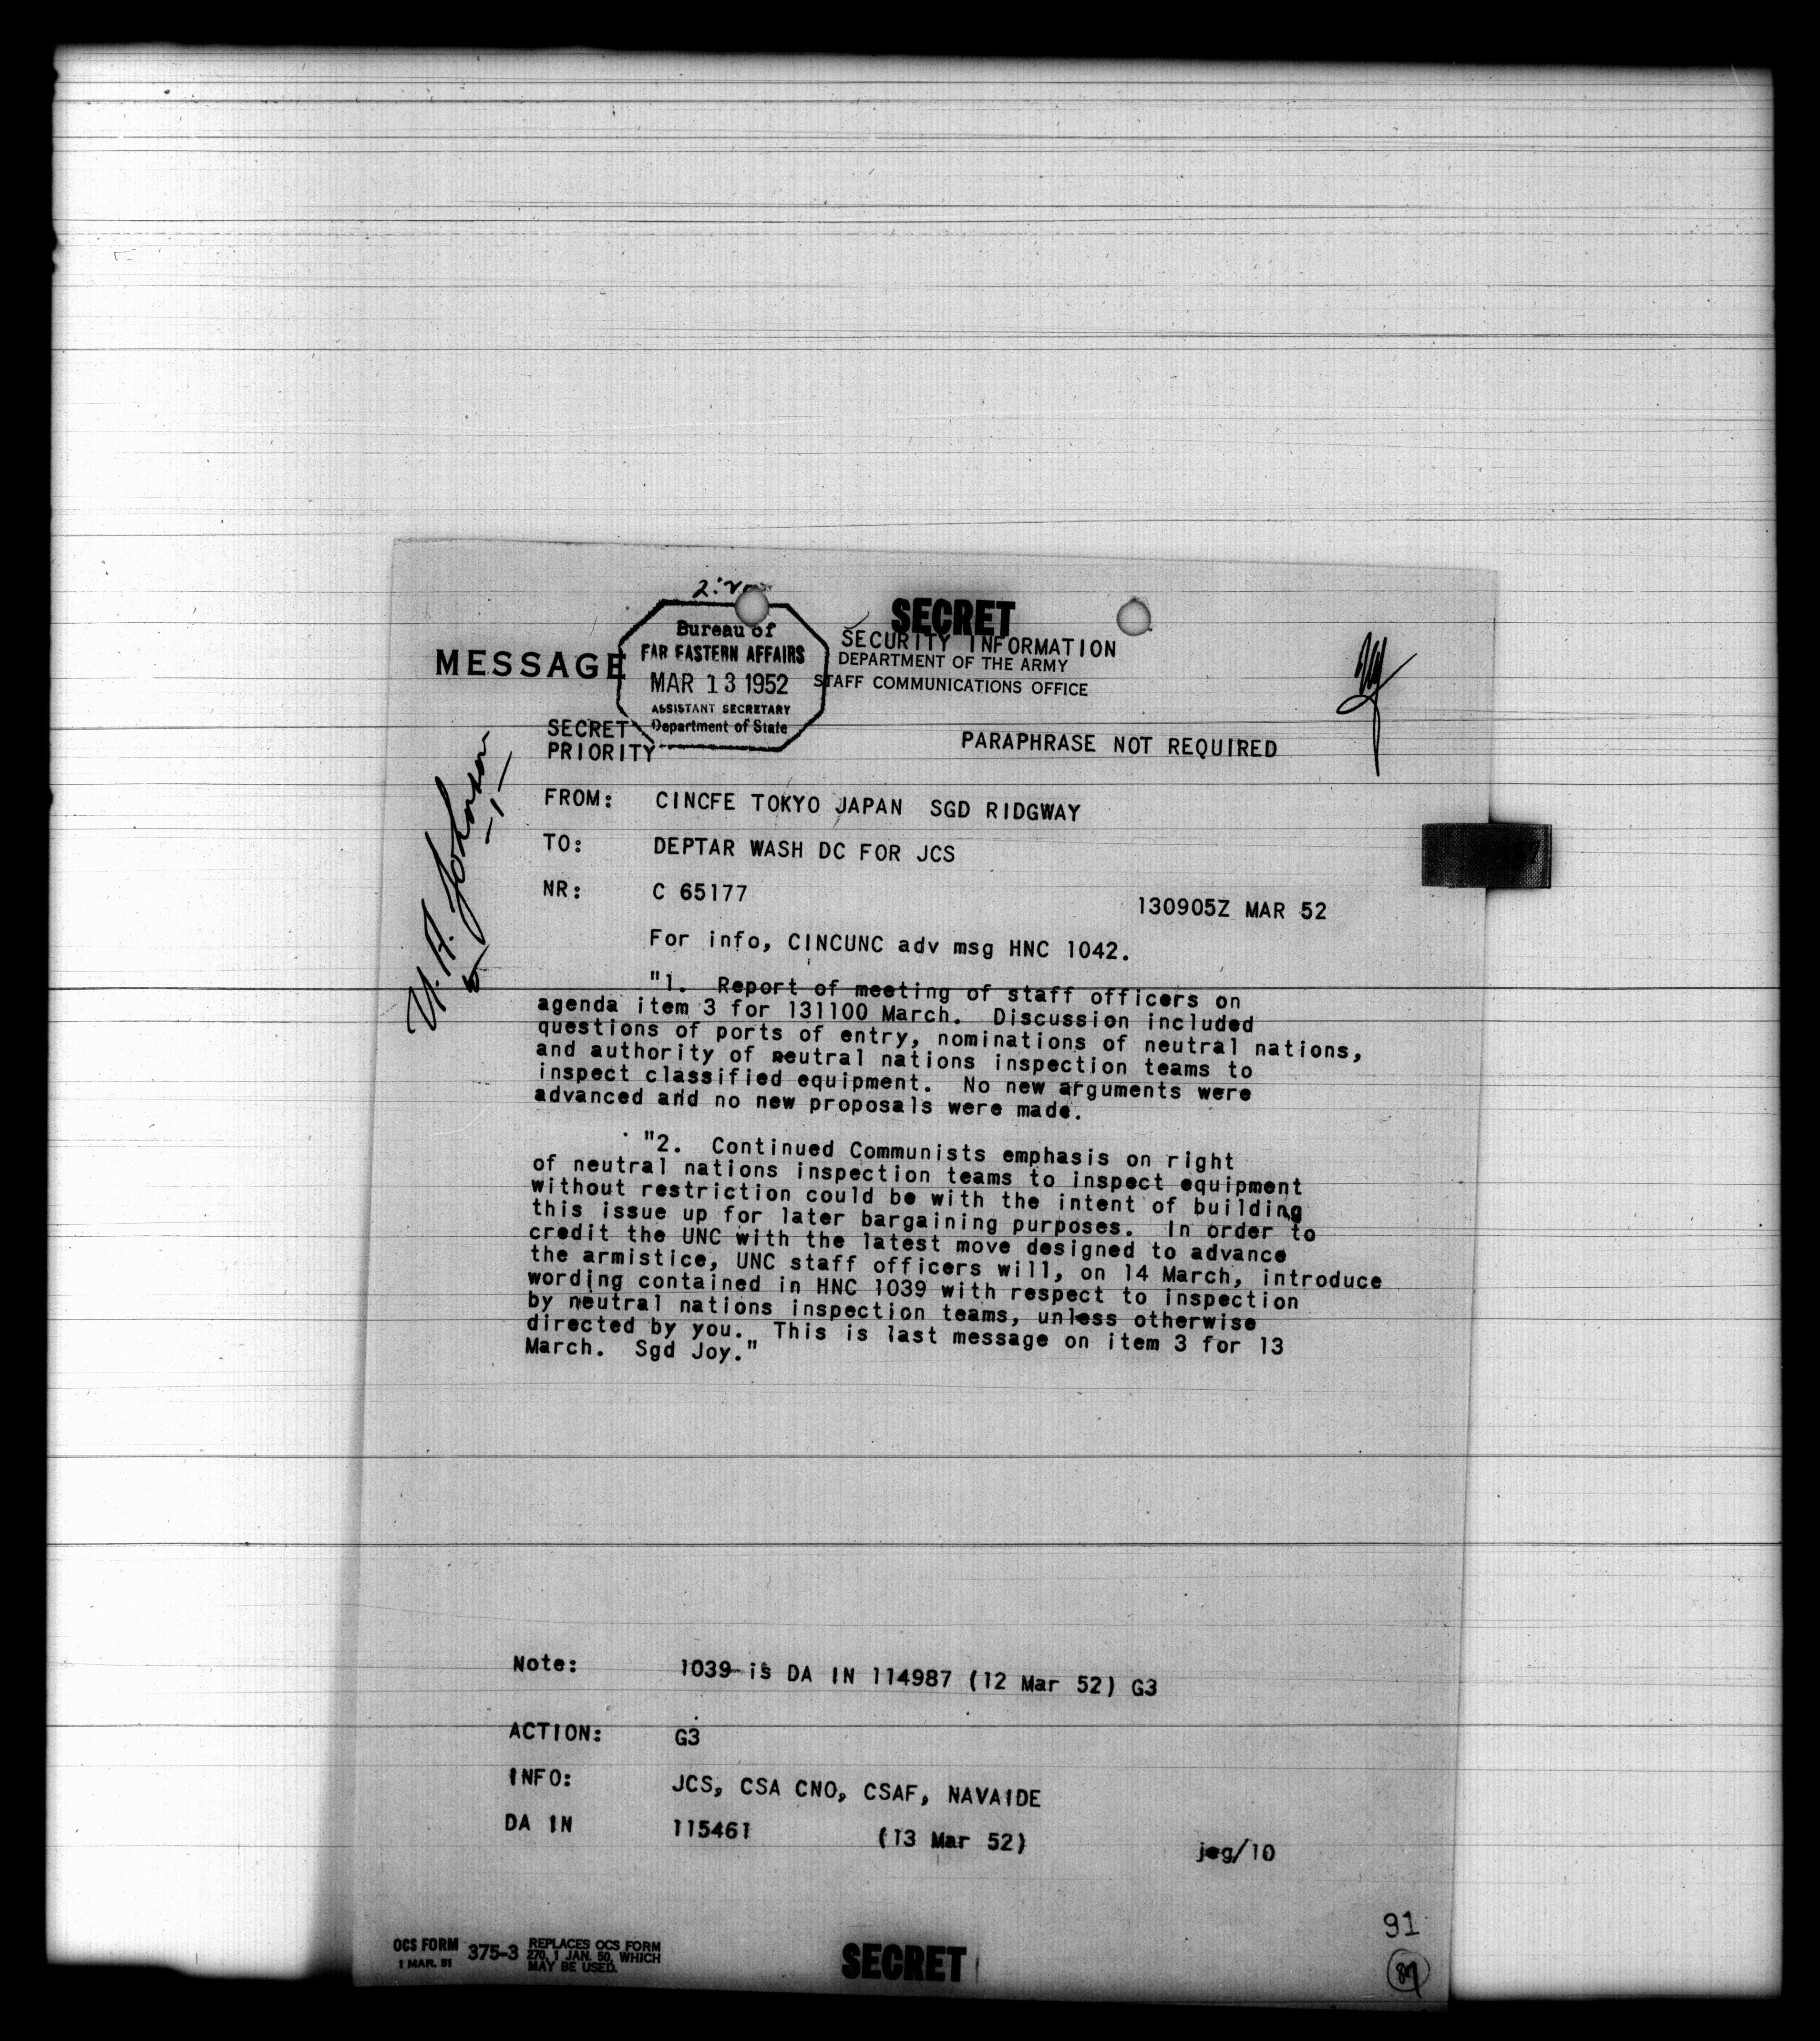 SECRET
SECURITY INFORMATION
DEPARTMENT OF THE ARMY
STAFF COMMUNICATIONS OFFICE
MESSAGE
Bureau of
FAR EASTERN AFFAIRS
MAR 13 1952
ASSISTANT SECRETARY
Department of State
SECRET
PRIORITY
PARAPHRASE NOT REQUIRED
U. A. Johnson
FROM: CINCFE TOKYO JAPAN SGD RIDGWAY
TO: DEPTAR WASH DC FOR JCS
NR: C 65177 130905Z MAR 52
For info, CINCUNC adv msg HNC 1042.
"1. Report of meeting of staff officers on
agenda item 3 for 131100 March. Discussion included
questions of ports of entry, nominations of neutral nations,
and authority of neutral nations inspection teams to
inspect classified equipment. No new arguments were
advanced and no new proposals were made.
"2. Continued Communists emphasis on right
of neutral nations inspection teams to inspect equipment
without restriction could be with the intent of building
this issue up for later bargaining purposes. In order to
credit the UNC with the latest move designed to advance
the armistice, UNC staff officers will, on 14 March, introduce
wording contained in HNC 1039 with respect to inspection
by neutral nations inspection teams, unless otherwise
directed by you. This is last message on item 3 for 13
March. Sgd Joy."
Note: 1039 is DA IN 114987 (12 Mar 52) G3
ACTION: G3
INFO: JCS, CSA CNO, CSAF, NAVAIDE
DA IN 115461 (13 Mar 52) jeg/10
91
OCS FORM 375-3 REPLACES OCS FORM
1 MAR. 51 270, 1 JAN. 50, WHICH
MAY BE USED.
SECRET